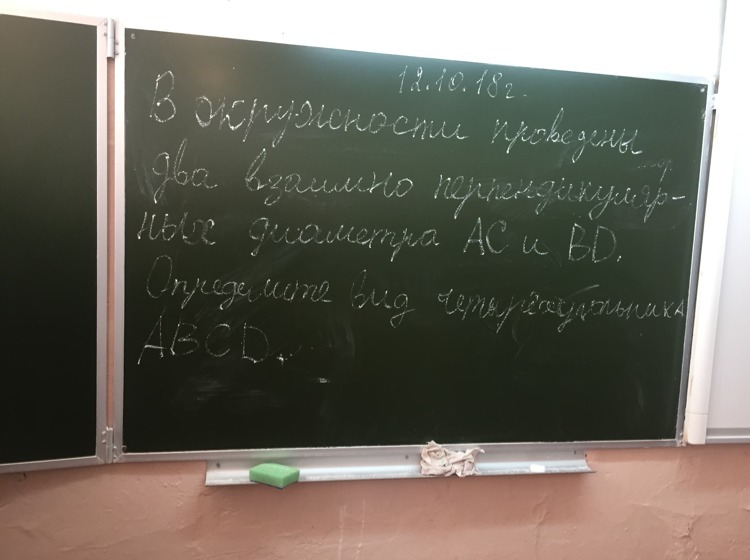 12.10.18г.
В окружности проведены
два взаимно перпендикуляр-
ных диаметра AC и BD.
Определите вид четырёхугольника
ABCD.